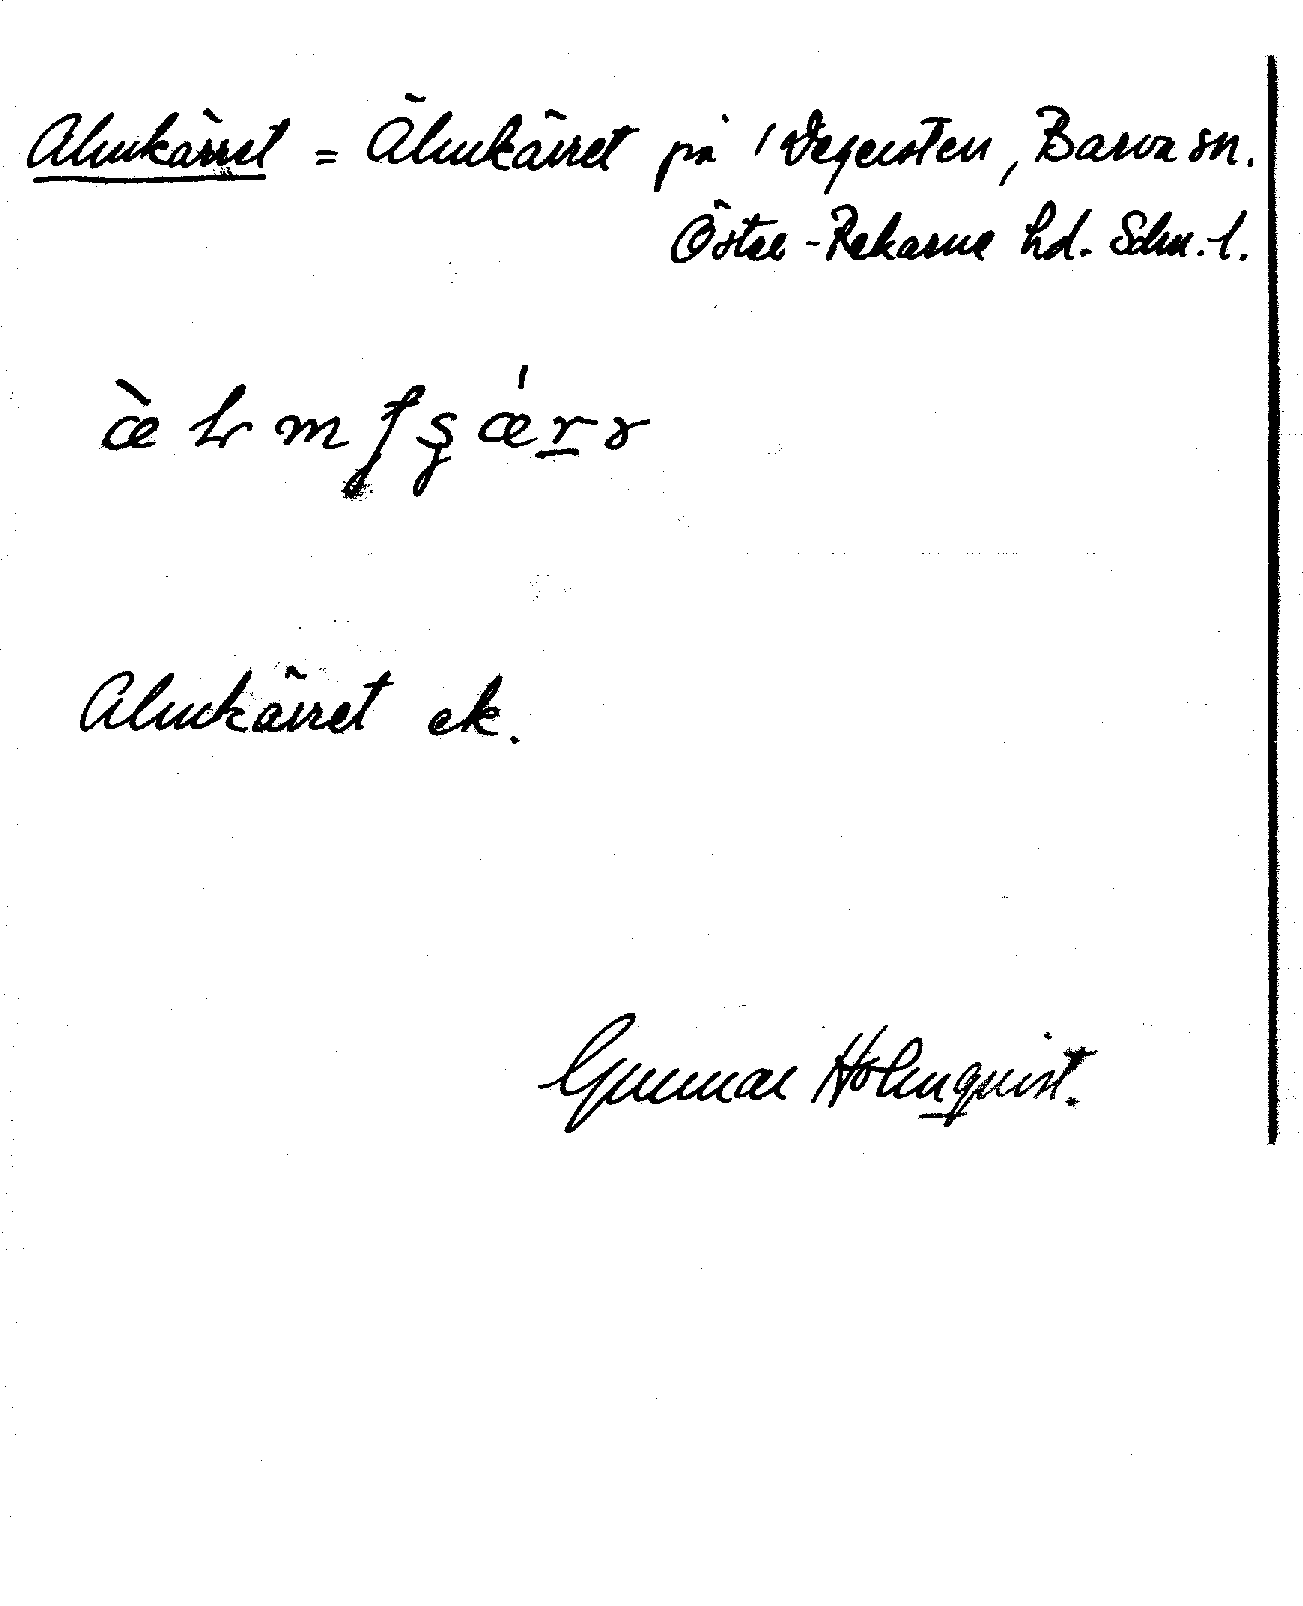 Almkärret = Älmkärret på Degersten, Barva sn.
Öster-Rekarne hd. Sdm. l.
Almkärret ek.
Gunnar Holmquist.